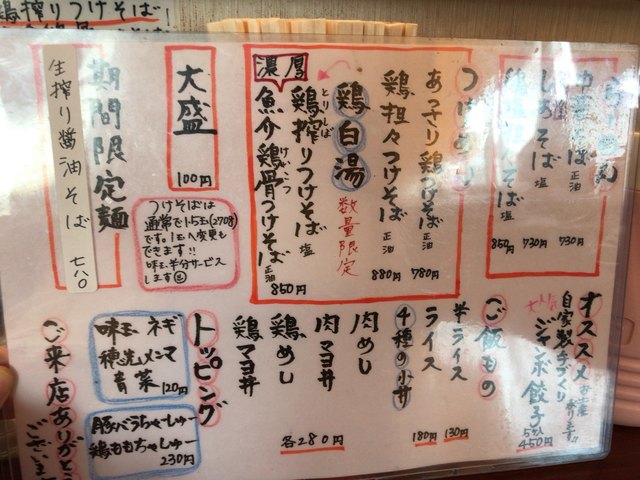 鶏搾りつけそば!
らーめん
中華そば 正油 730円
しおそば 塩 730円
850円
つけめん
あっさり鶏つけそば 正油 780円
鶏担々つけそば 正油 880円
鶏白湯 数量限定
濃厚
とりしぼ
鶏搾りつけそば 塩
けいこつ
魚介鶏骨つけそば 正油
850円
大盛
100円
つけそばは
通常で1.5玉(270g)
です。1玉へ変更も
できます!!
味玉半分サービス
します
期間限定麺
生搾り醤油そば 七八〇
オススメ
自家製手づくり
大人気
ジャンボ餃子
5ヶ入
450円
ご飯もの
半ライス 130円
ライス 180円
4種の小丼
肉めし
肉マヨ丼
鶏めし
鶏マヨ丼
各280円
トッピング
味玉 ネギ
穂先メンマ
青菜 120円
豚バラちゃしゅー
鶏ももちゃしゅー
230円
ご来店ありがとう
ございま